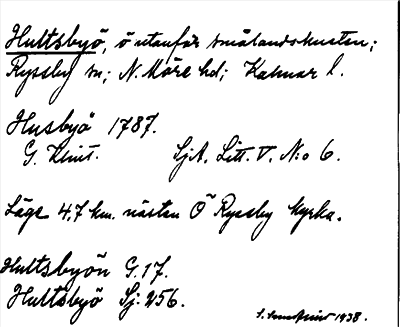 Hultsbyö, ö utanför smålandskusten;
Ryssby sn; N. Möre hd; Kalmar l.
Husbyö 1787.
G. Klint. SjA. Litt. V. N:o 6.
Läge 4,7 km. nästan Ö Ryssby kyrka.
Hultsbyön G.17.
Hultsbyö Sj: 256.
1938.